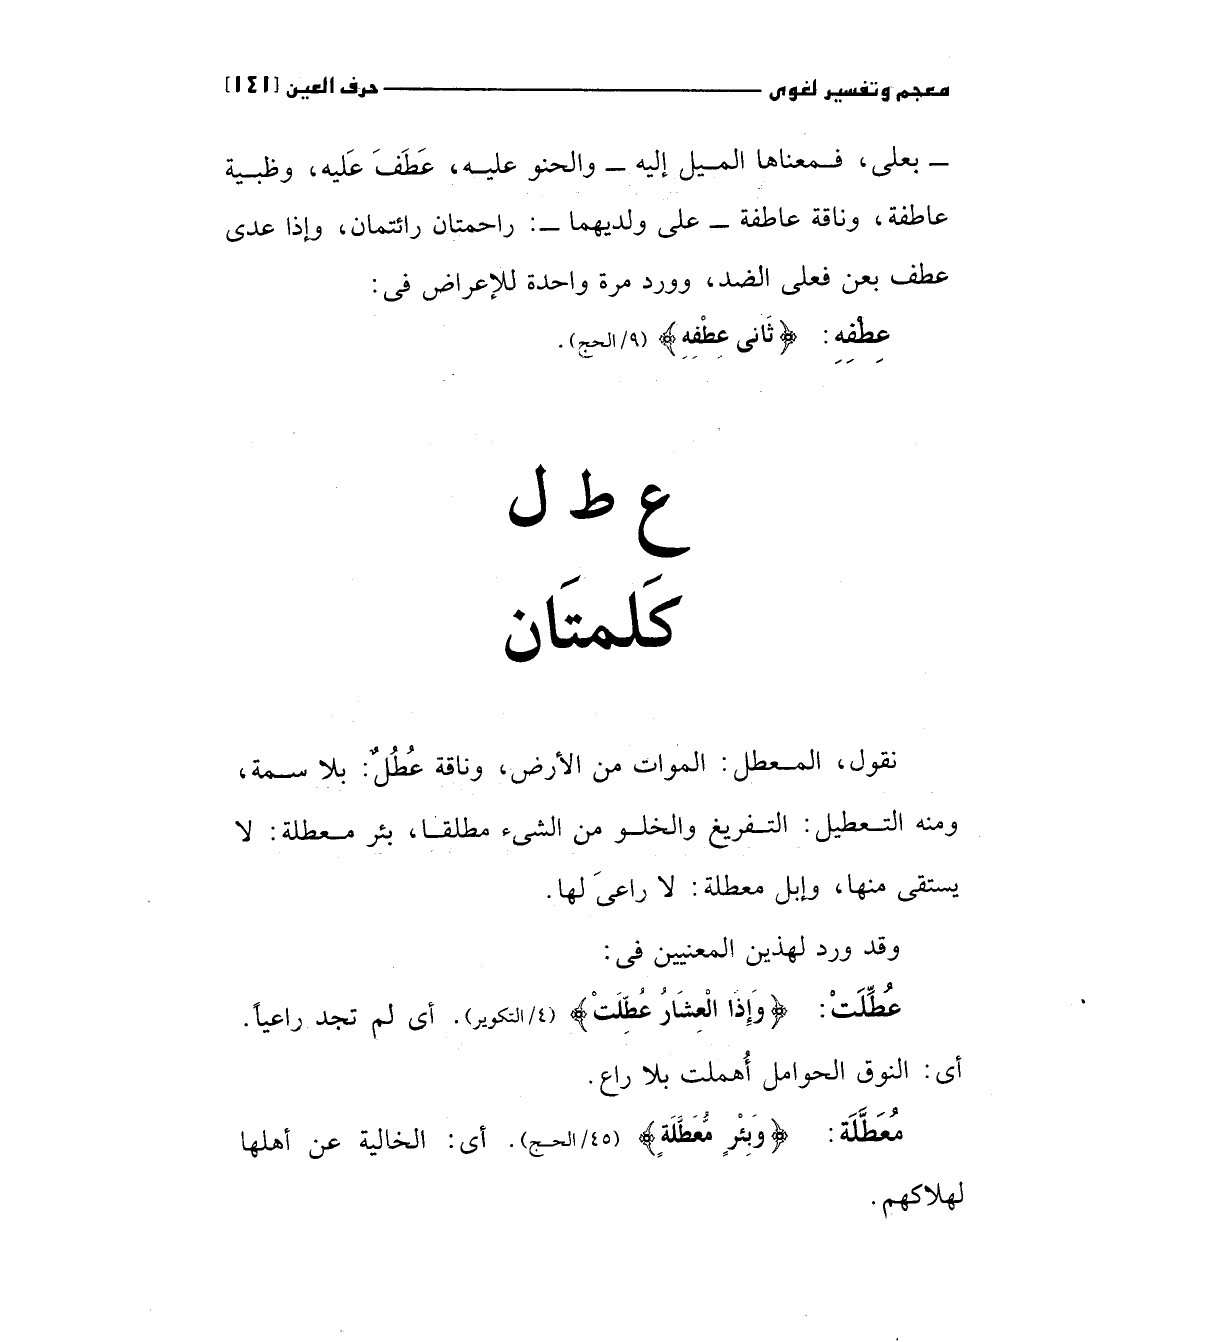 معجم وتفسير لغوى ــــــــ حرف العين [١٤١]
ــ بعلى، فمعناها الميل إليه ــ والحنو عليه، عَطَفَ عَليه، وظبية
عاطفة، وناقة عاطفة ــ على ولديهما ــ: راحمتان رائتمان، وإذا عدى
عطف بعن فعلى الضد، وورد مرة واحدة للإعراض فى:
عِطْفِهِ: ﴿ثَانِى عِطْفِهِ﴾ (٩/الحج).
ع ط ل
كَلمتَان
نقول، المعطل: الموات من الأرض، وناقة عُطُلٌ: بلا سمة،
ومنه التعطيل: التفريغ والخلو من الشىء مطلقا، بئر معطلة: لا
يستقى منها، وإبل معطلة: لا راعىَ لها.
وقد ورد لهذين المعنيين فى:
عُطِّلَتْ: ﴿وَإِذَا الْعِشَارُ عُطِّلَتْ﴾ (٤/التكوير). أى لم تجد راعياً.
أى: النوق الحوامل أُهملت بلا راع.
مُعَطَّلَة: ﴿وَبِئْرٍ مُّعَطَّلَةٍ﴾ (٤٥/الحج). أى: الخالية عن أهلها
لهلاكهم.